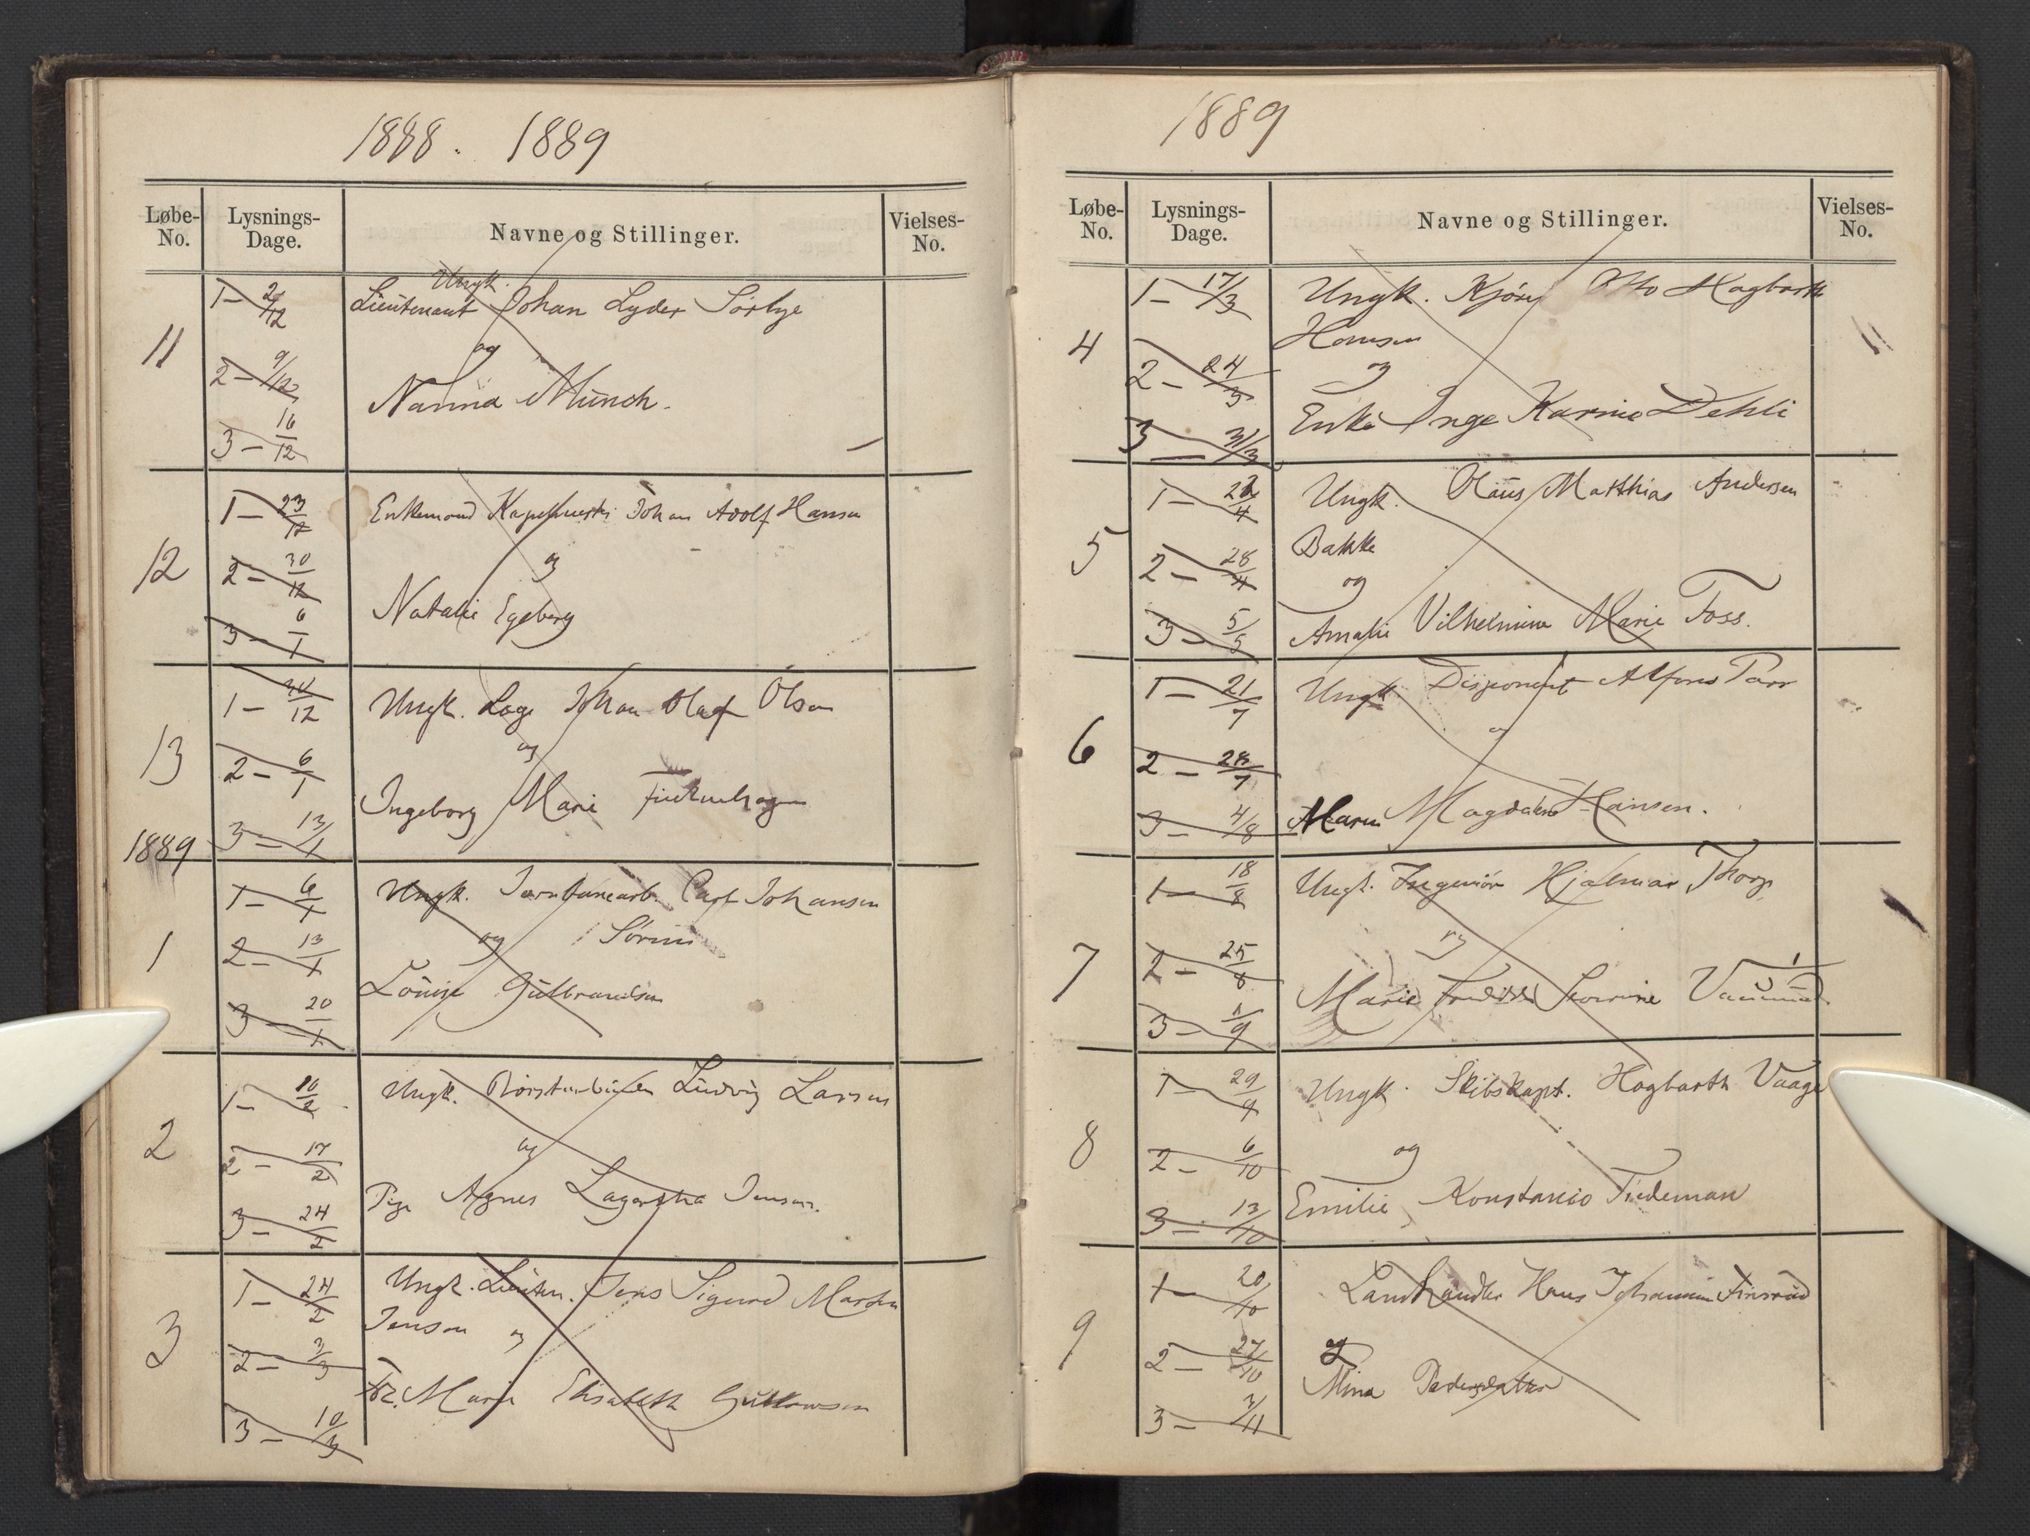 1888. 1889
Løbe-No. Lysnings-Dage. Navne og Stillinger. Vielses-No.
11
1 - 2/12
2 - 9/12
3 - 16/12
Ungk.
Lieutenant Johan Lyder Sørbye
og
Nanna Munch.
12
1 - 23/12
2 - 30/12
3 - 6/1
Enkemand Johan Adolf Hansen
og
Natalie Egeberg
13
1 - 30/12
2 - 6/1
3 - 13/1
Ungk. Johan Olaf Olsen
og
Ingeborg Marie
1889
1
1 - 6/1
2 - 13/1
3 - 20/1
Ungk. Carl Johansen
og
Louise Gulbrandsen
2
1 - 10/2
2 - 17/2
3 - 24/2
Ungk. Ludvig Larsen
og
Pige Agnes Lagertha Jensen.
3
1 - 24/2
2 - 3/3
3 - 10/3
Ungk. Lieuten. Jens Sigurd Martin
Jensen og
Marie Elisabeth
1889
Løbe-No. Lysnings-Dage. Navne og Stillinger. Vielses-No.
4
1 - 17/3
2 - 24/3
3 - 31/3
Ungk. Otto Hagbarth
Hansen
og
Enke Inge Karine Dehli
5
1 - 21/4
2 - 28/4
3 - 5/5
Ungk. Olaus Matthias Andersen
Bakke
og
Amalie Vilhelmine Marie Foss.
6
1 - 21/7
2 - 28/7
3 - 4/8
Ungk. Disponent Alfons
og
Maren Magdalene Hansen.
7
1 - 18/8
2 - 25/8
3 - 1/9
Ungk. Ingeniør Hjalmar Thorp
og
Marie Severine
8
1 - 29/9
2 - 6/10
3 - 13/10
Ungk. Skibskapt. Hagbarth Vaage
og
Emilie Konstanse Tiedeman
9
1 - 20/10
2 - 27/10
3 - 3/11
Landhandler Hans
og
Mina Pedersdatter